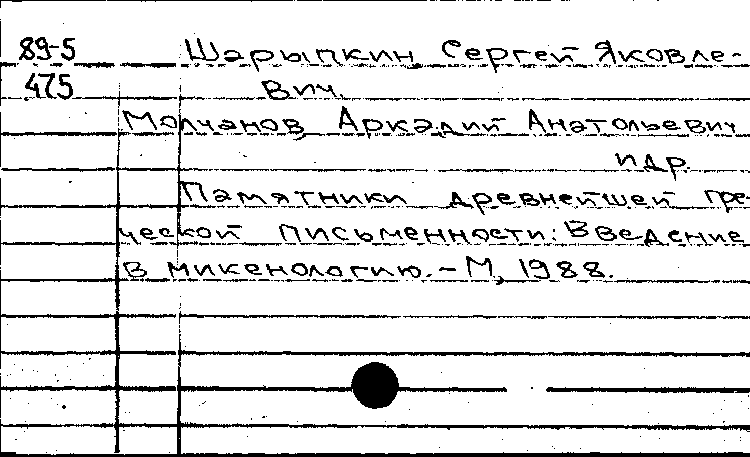 89-5 Шарыпкин Сергей Яковле-
475 вич.
Молчанов, Аркадий Анатольевич
и др.
Памятники древнейшей гре-
ческой письменности: Введение
в микенологию. – М, 1988.